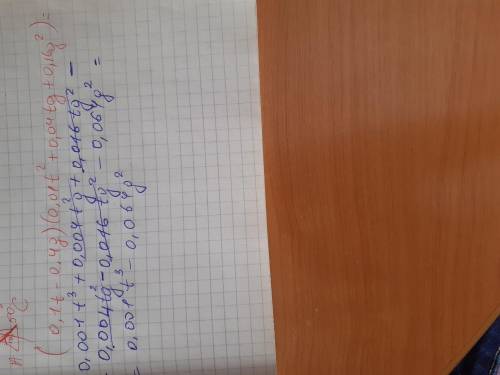 (0,1t-0,4g)(0,01t²+0,04tg+0,16g²)=
0,001t³+0,004t²g+0,016tg²-
-0,004t²g-0,016tg²-0,064g²=
=0,001t³-0,064g²